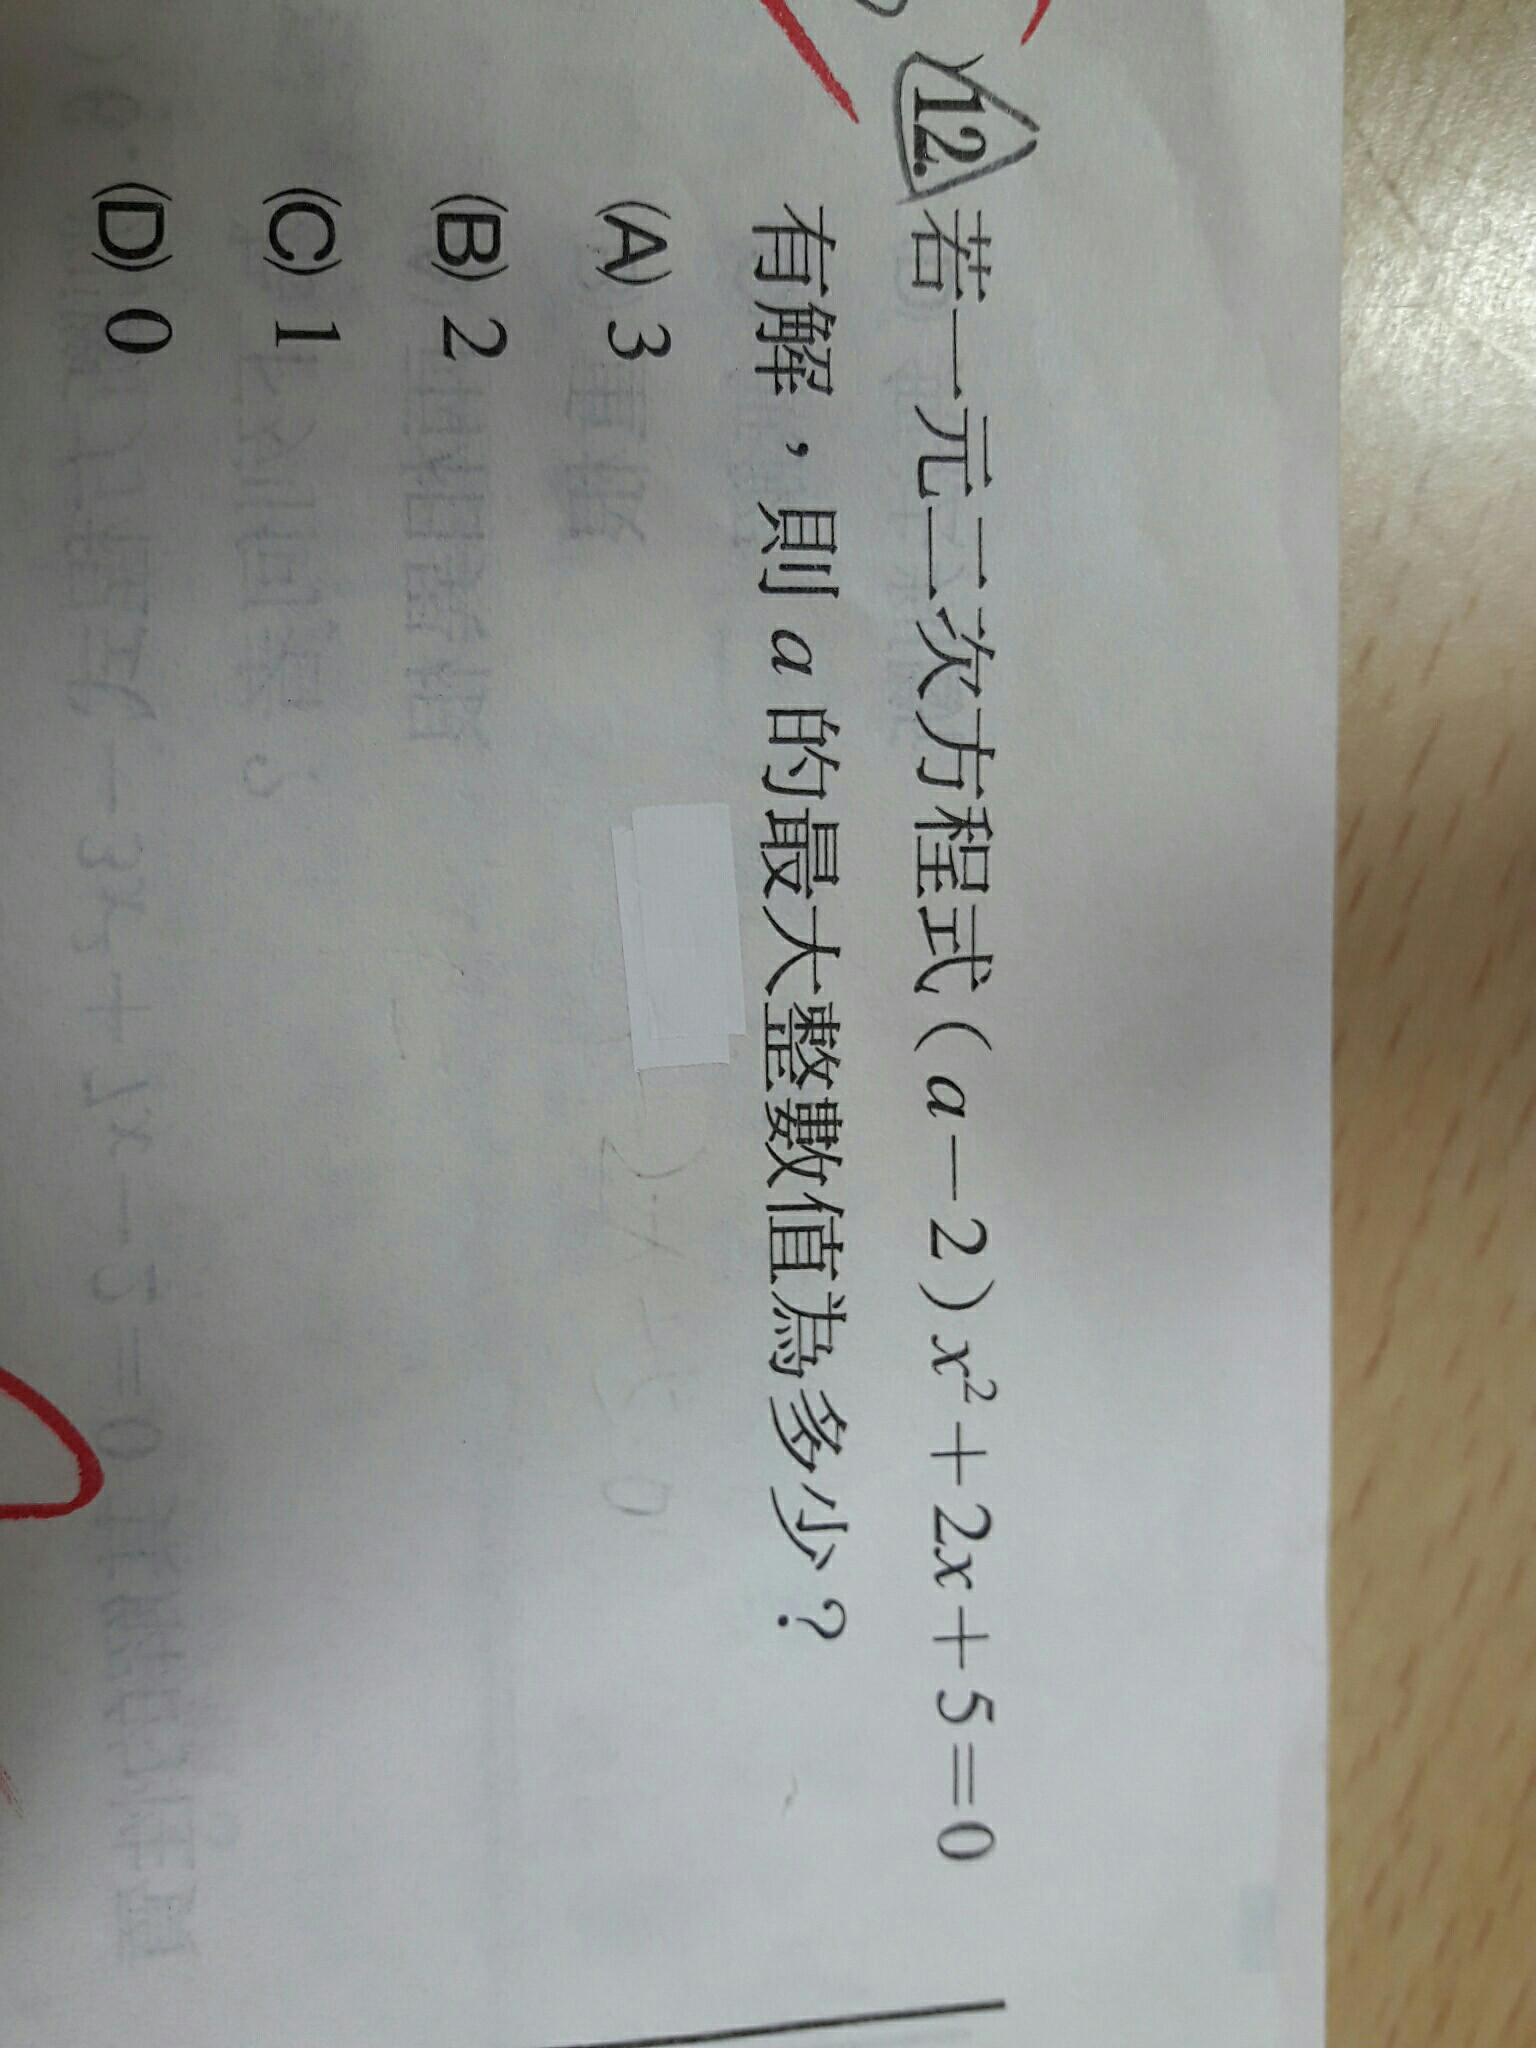 12.若一元二次方程式(a－2)x²＋2x＋5＝0
有解，則a的最大整數值為多少？
(A) 3
(B) 2
(C) 1
(D) 0